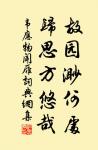 故园渺何处
归思方悠哉
韦应物闻雁词典网集